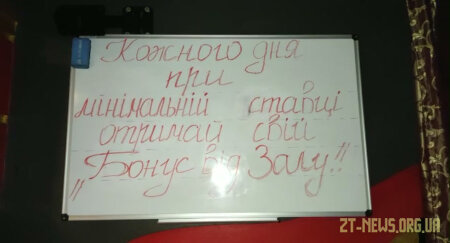 Кожного дня
при
мінімальній ставці
отримай свій
„Бонус від Залу"!!
ZT-NEWS.ORG.UA